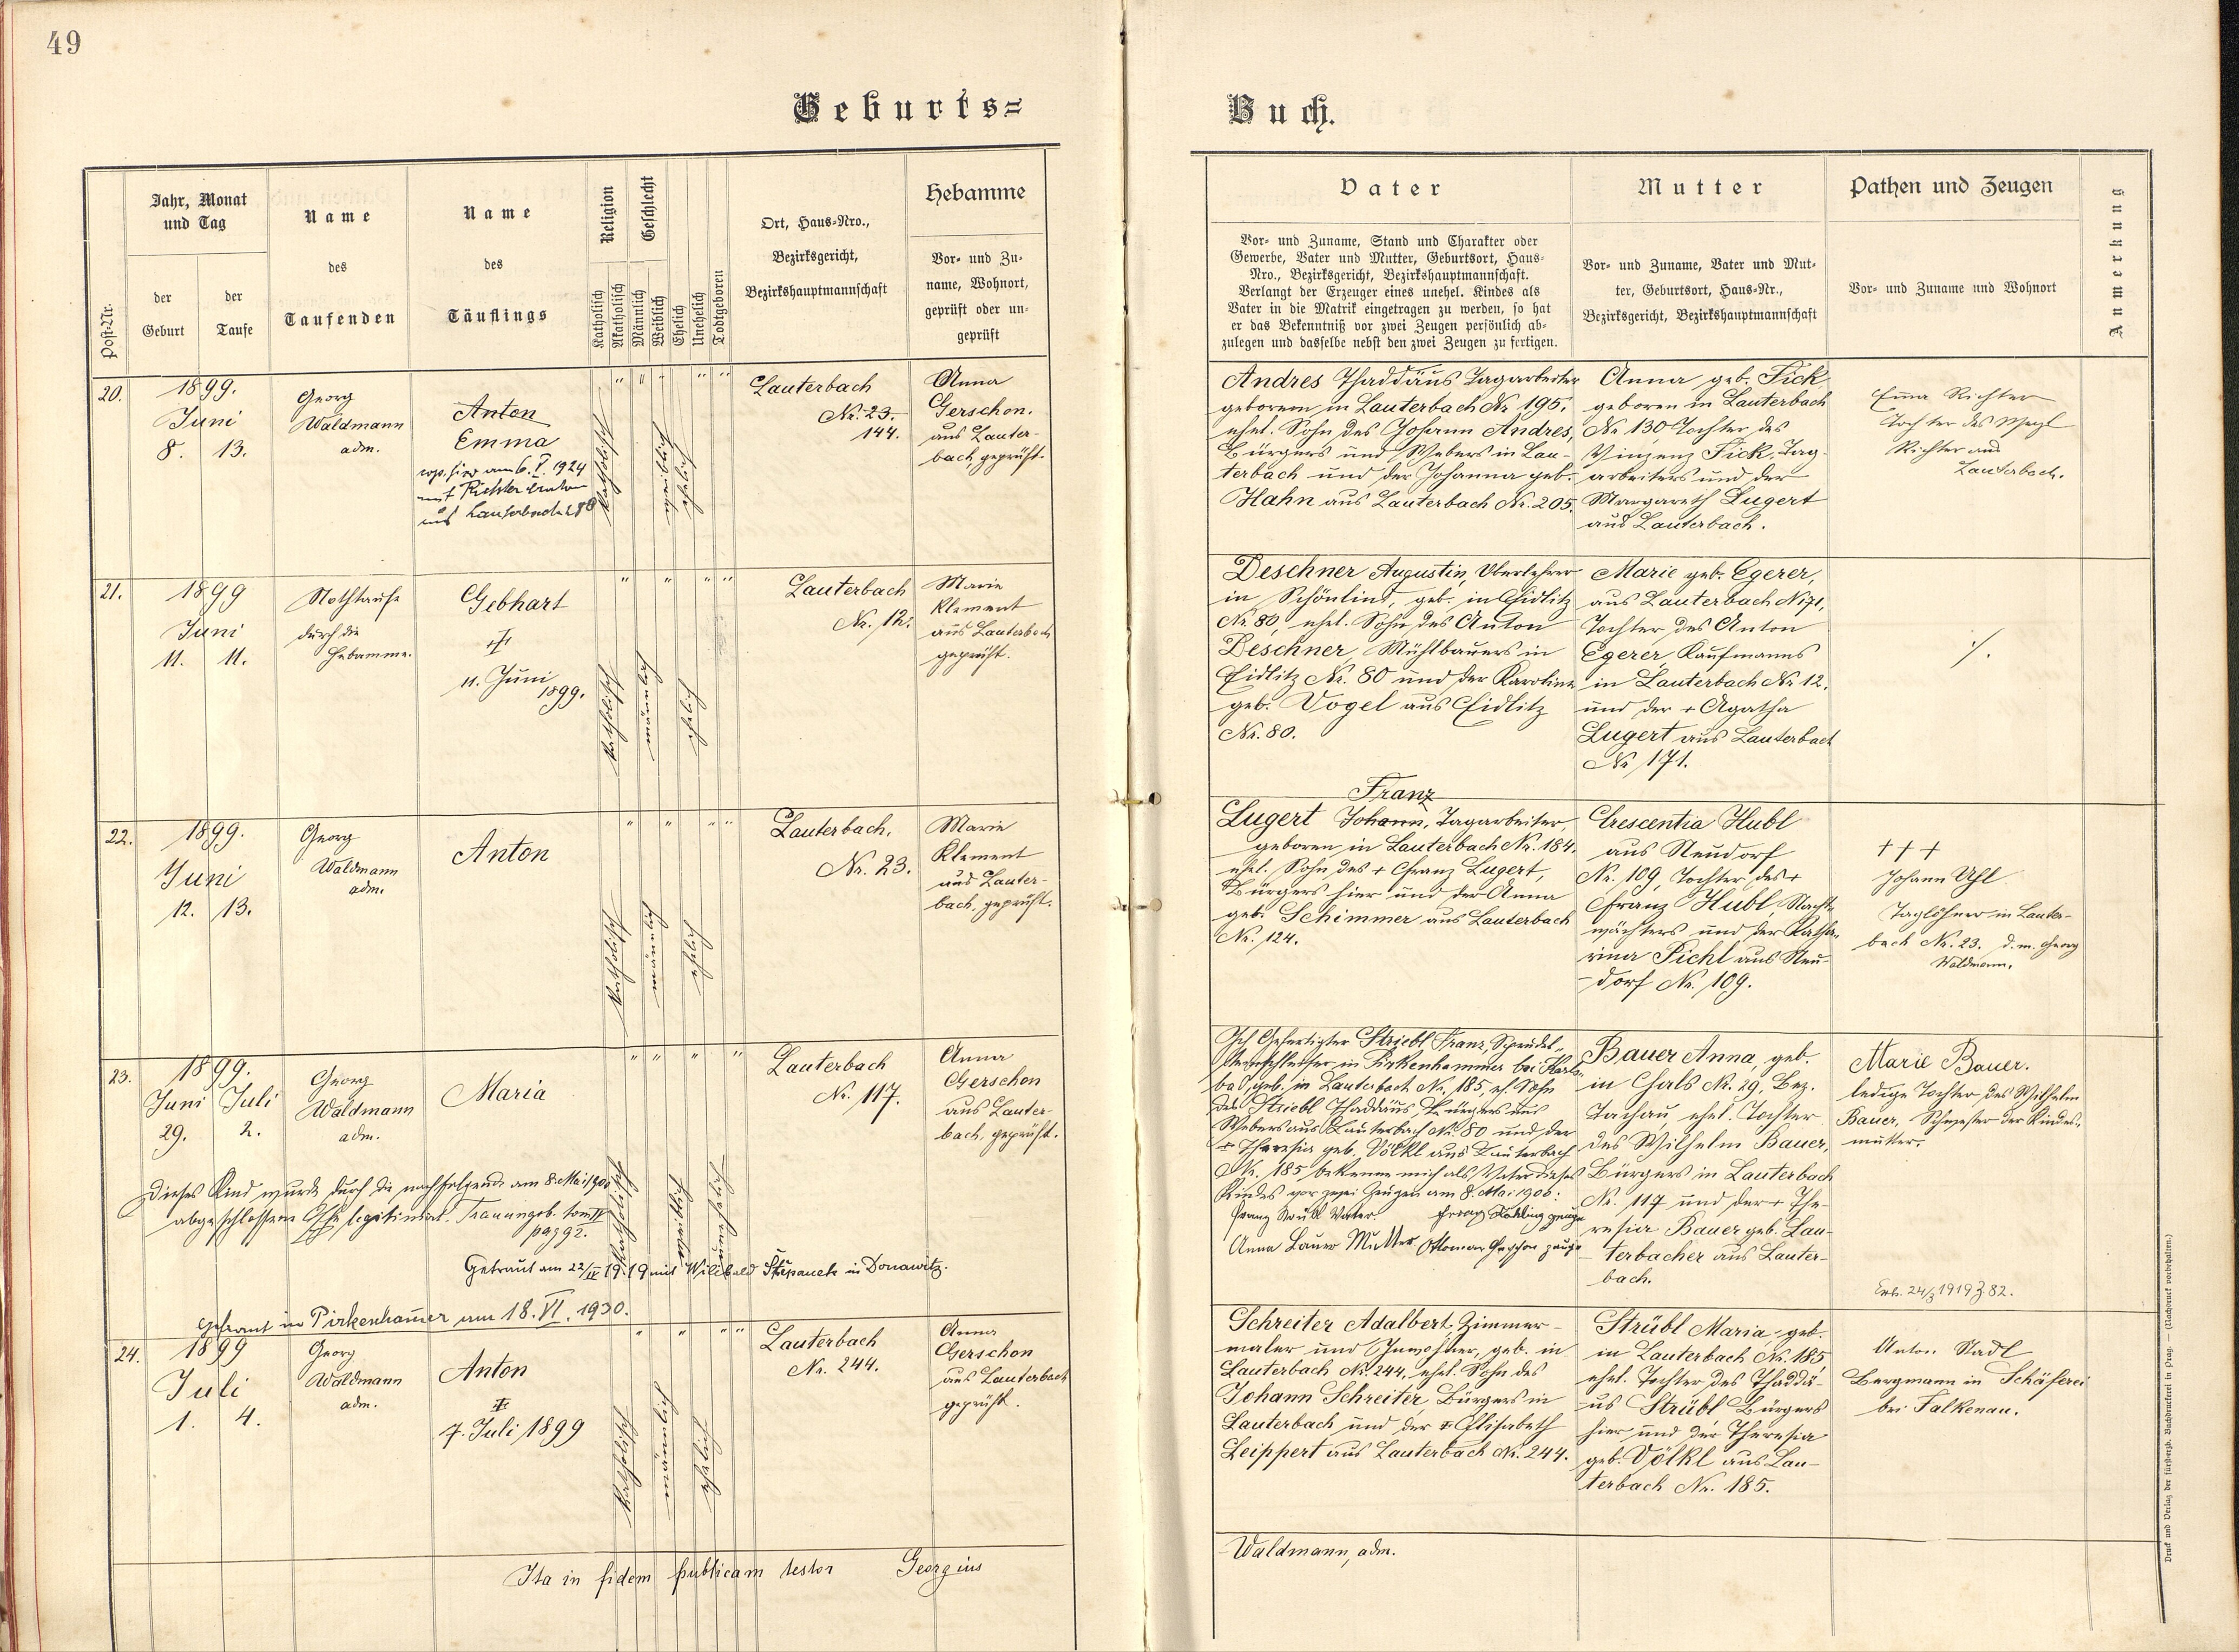 49
Geburts=
Buch.
Post-Nr.
Jahr, Monat
und Tag
der
Geburt
der
Taufe
Name
des
Taufenden
Name
des
Täuflings
Religion
Katholisch
Akatholisch
Geschlecht
Männlich
Weiblich
Ehelich
Unehelich
Todtgeboren
Ort, Haus-Nro.,
Bezirksgericht,
Bezirkshauptmannschaft
Hebamme
Vor- und Zu-
name, Wohnort,
geprüft oder un-
geprüft
Vater
Vor- und Zuname, Stand und Charakter oder
Gewerbe, Vater und Mutter, Geburtsort, Haus-
Nro., Bezirksgericht, Bezirkshauptmannschaft.
Verlangt der Erzeuger eines unehel. Kindes als
Vater in die Matrik eingetragen zu werden, so hat
er das Bekenntniß vor zwei Zeugen persönlich ab-
zulegen und dasselbe nebst den zwei Zeugen zu fertigen.
Mutter
Vor- und Zuname, Vater und Mut-
ter, Geburtsort, Haus-Nr.,
Bezirksgericht, Bezirkshauptmannschaft
Pathen und Zeugen
Vor- und Zuname und Wohnort
Anmerkung
20.
1899.
Juni
8. 13.
Georg
Waldmann
adm.
Anton
Emma
cop. hier am 6. I. 1924
mit Richter Anton
aus Lauterbach
katholisch
weiblich
ehelich
Lauterbach
Nr. 23.
144.
Anna
Gerschon.
aus Lauter-
bach, geprüft.
Andres Thaddäus Tagarbeiter
geboren in Lauterbach Nr. 195.
ehel. Sohn des Johann Andres,
Bürgers und Webers in Lau-
terbach und der Johanna geb.
Hahn aus Lauterbach Nr. 205.
Anna geb. Fick
geboren in Lauterbach
Nr. 130 Tochter des
Vinzenz Fick, Tag-
arbeiters und der
Margareth Lugert
aus Lauterbach.
Emma Richter
Tochter des Wenzl
Richter aus
Lauterbach.
21.
1899
Juni
11. 11.
Nothtaufe
durch die
Hebamme.
Gebhart
†
11. Juni
1899.
katholisch
männlich
ehelich
Lauterbach
Nr. 12.
Marie
Klement
aus Lauterbach
geprüft.
Deschner Augustin, Oberlehrer
in Schönlind, geb. in Eidlitz
Nr. 80, ehel. Sohn des Anton
Deschner, Mühlbauers in
Eidlitz Nr. 80 und der Karolina
geb. Vogel aus Eidlitz
Nr. 80.
Marie geb. Egerer,
aus Lauterbach Nr 71,
Tochter des Anton
Egerer, Kaufmanns
in Lauterbach Nr 12.
und der + Agatha
Lugert aus Lauterbach
Nr 171.
./.
22.
1899.
Juni
12. 13.
Georg
Waldmann
adm.
Anton
katholisch
männlich
ehelich
Lauterbach.
Nr. 23.
Marie
Klement
aus Lauter-
bach, geprüft.
Franz
Lugert Johann, Tagarbeiter,
geboren in Lauterbach Nr. 184.
ehel. Sohn des + Franz Lugert,
Bürgers hier und der Anna
geb. Schimmer aus Lauterbach
Nr. 124.
Crescentia Hubl
aus Neudorf
Nr. 109, Tochter des +
Franz Hubl, Nacht-
wächters und der Katha-
rina Pichl aus Neu-
dorf Nr. 109.
+++
Johann Uhl
Taglöhner in Lauter-
bach Nr. 23. d. m. Georg
Waldmann.
23.
1899.
Juni Juli
29. 2.
Georg
Waldmann
adm.
Maria
katholisch
weiblich
unehelich
Lauterbach
Nr. 117.
Anna
Gerschon
aus Lauter-
bach, geprüft.
Dieses Kind wurde durch die nachfolgende am 8. Mai 1900
abgeschlossene Ehe legitimirt. Trauungsb. tom IV
pag 92.
Getraut am 22/IV 1919 mit Willibald Štěpanek in Donawitz.
Getraut in Pirkenhammer am 18. VI. 1930.
Ich Gefertigter Striebl Franz, Sprudel-
steinschleifer in Pirkenhammer bei Karls-
bad, geb. in Lauterbach Nr. 185, eh. Sohn
des Striebl Thaddäus Bürgers und
Webers aus Lauterbach Nr. 80 und der
+ Theresia geb. Völkl aus Lauterbach
Nr. 185 bekenne mich als Vater dieses
Kindes vor zwei Zeugen am 8. Mai 1900:
Franz Vater. Zeuge
Anna Bauer Mutter Ottomar Gerschon Zeuge
Bauer Anna, geb.
in Gals Nr. 29, Bez.
Tachau, ehel. Tochter
des Wilhelm Bauer,
Bürgers in Lauterbach
Nr. 117 und der + The-
resia Bauer geb. Lau-
terbacher aus Lauter-
bach.
Marie Bauer.
ledige Tochter des Wilhelm
Bauer, Schwester der Kindes-
mutter.
24/3 1919 Z. 82.
24.
1899
Juli
1. 4.
Georg
Waldmann
adm.
Anton
†
7. Juli 1899
katholisch
männlich
ehelich
Lauterbach
Nr. 244.
Anna
Gerschon
aus Lauterbach
geprüft.
Schreiter Adalbert, Zimmer-
maler und Inwohner, geb. in
Lauterbach Nr. 244, ehel. Sohn des
Johann Schreiter, Bürgers in
Lauterbach und der + Elisabeth
Leippert aus Lauterbach Nr. 244.
Strübl Maria, geb.
in Lauterbach Nr. 185,
ehel. Tochter des Thaddä-
us Strübl Bürgers
hier und der Theresia
geb. Völkl aus Lau-
terbach Nr. 185.
Anton Stadl
Bergmann in Schäferei
bei Falkenau.
Ita in fidem publicam testor Georgius
Waldmann, adm.
Druck und Verlag der fürsterzb. Buchdruckerei in Prag. — (Nachdruck vorbehalten.)